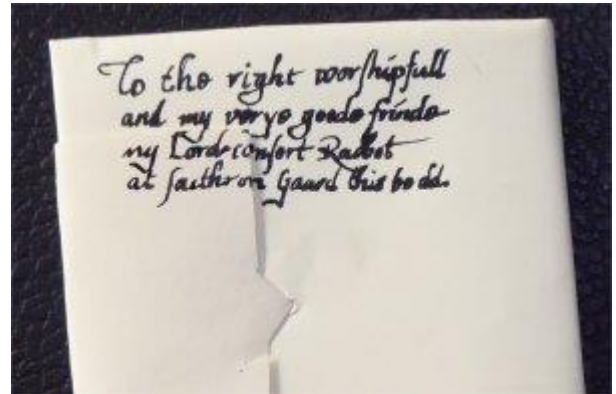 To the right worshipfull
and my verye goode frinde
my Lorde consort Radbot
at faethron Gaard this be dd.